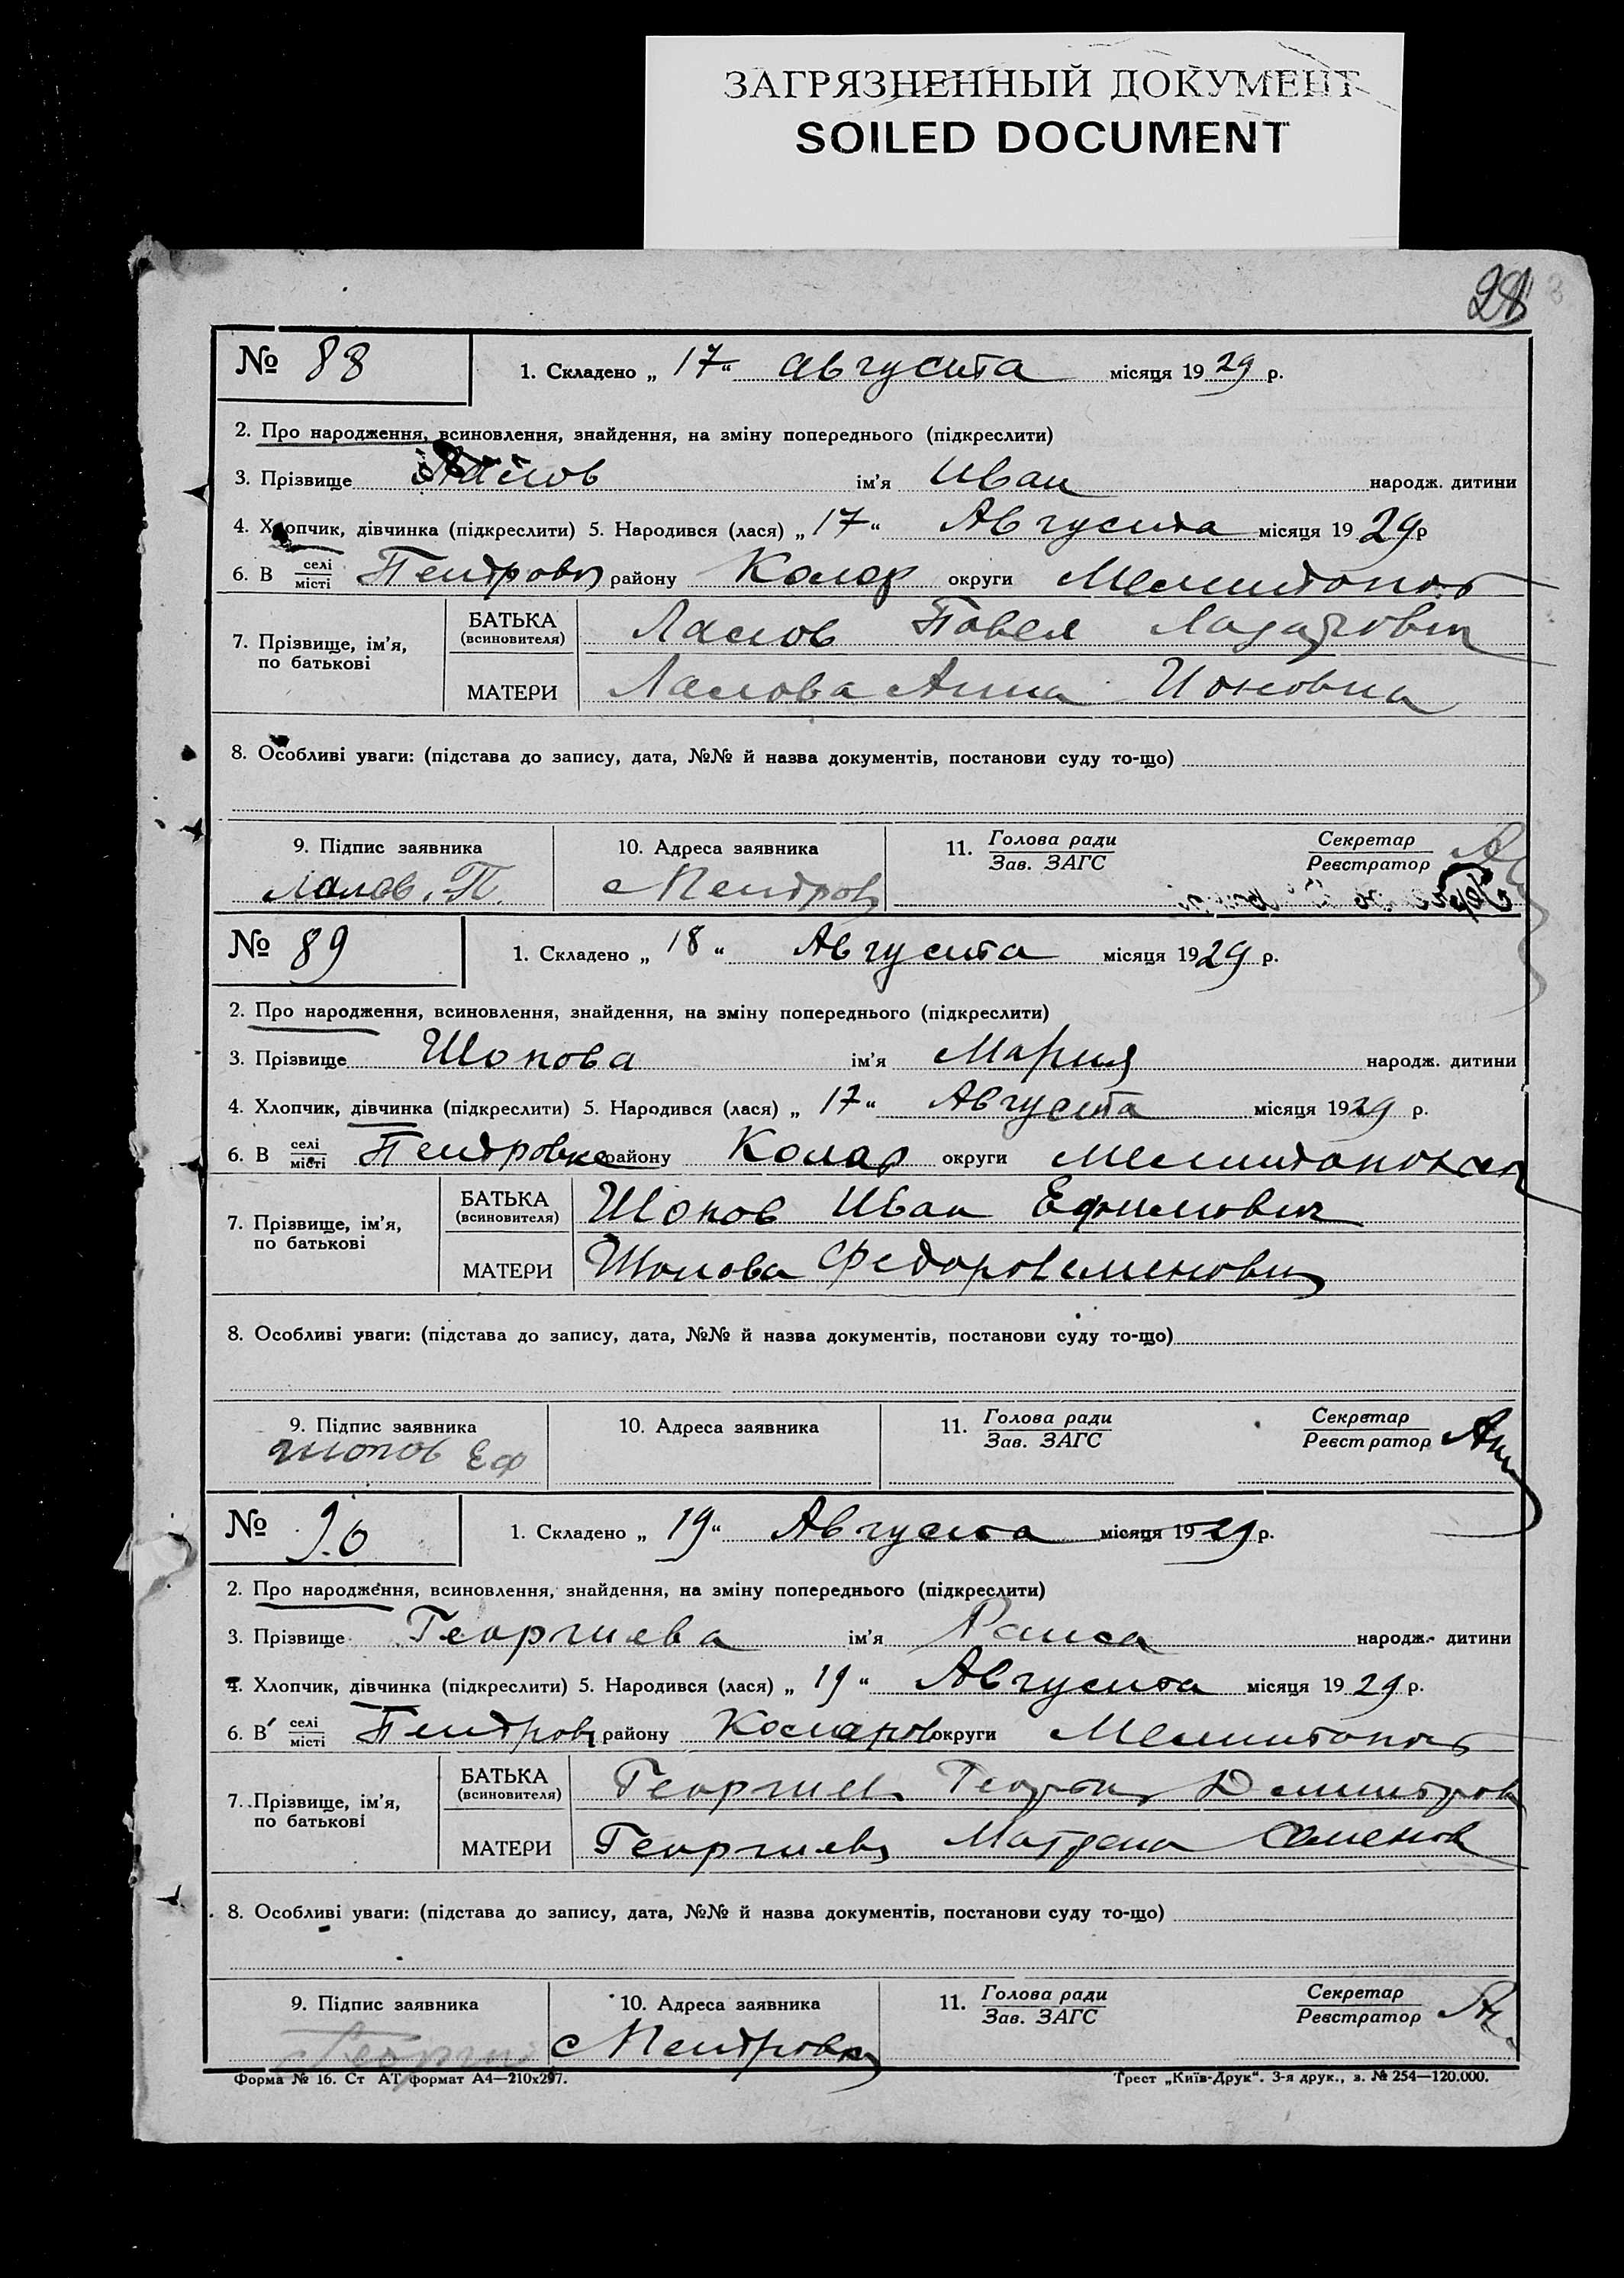 ЗАГРЯЗНЕННЫЙ ДОКУМЕНТ
SOILED DOCUMENT
28
№ 88
1. Складено „ 17 “ августа місяця 1929 р.
2. Про народження, всиновлення, знайдення, на зміну попереднього (підкреслити)
3. Прізвище ім’я Иван народж. дитини
4. Хлопчик, дівчинка (підкреслити) 5. Народився (лася) „ 17 “ Августа місяця 1929 р
6. В селі місті Петров району Колар округи Мелитопол
7. Прізвище, ім’я, по батькові
БАТЬКА (всиновителя) Павел Лазарович
МАТЕРИ Анна Ионовна
8. Особливі уваги: (підстава до запису, дата, №№ й назва документів, постанови суду то-що)
9. Підпис заявника
10. Адреса заявника
с Петров
11. Голова ради Зав. ЗАГС
Секретар Реєстратор
№ 89
1. Складено „ 18 “ Августа місяця 1929 р.
2. Про народження, всиновлення, знайдення, на зміну попереднього (підкреслити)
3. Прізвище Шопова ім’я Мария народж. дитини
4. Хлопчик, дівчинка (підкреслити) 5. Народився (лася) „ 17 “ Августа місяця 1929 р.
6. В селі місті Петровке району Колар округи
7. Прізвище, ім’я, по батькові
БАТЬКА (всиновителя) Шопов Иван Ефимович
МАТЕРИ Шопова
8. Особливі уваги: (підстава до запису, дата, №№ й назва документів, постанови суду то-що)
9. Підпис заявника
шопов Еф
10. Адреса заявника
11. Голова ради Зав. ЗАГС
Секретар Реєстратор
№ 90
1. Складено „ 19 “ Августа місяця 1929 р.
2. Про народження, всиновлення, знайдення, на зміну попереднього (підкреслити)
3. Прізвище Георгиева ім’я Раиса народж. дитини
4. Хлопчик, дівчинка (підкреслити) 5. Народився (лася) „ 19 “ Августа місяця 1929 р.
6. В селі місті Петров району Коларов округи Мелитопол
7. Прізвище, ім’я, по батькові
БАТЬКА (всиновителя) Георгиев Дмитров
МАТЕРИ Георгиева Матрена Семенов
8. Особливі уваги: (підстава до запису, дата, №№ й назва документів, постанови суду то-що)
9. Підпис заявника
10. Адреса заявника
с Петровка
11. Голова ради Зав. ЗАГС
Секретар Реєстратор
Форма № 16. Ст АТ формат А4—210х297.
Трест „Київ-Друк“. 3-я друк., з. № 254—120.000.